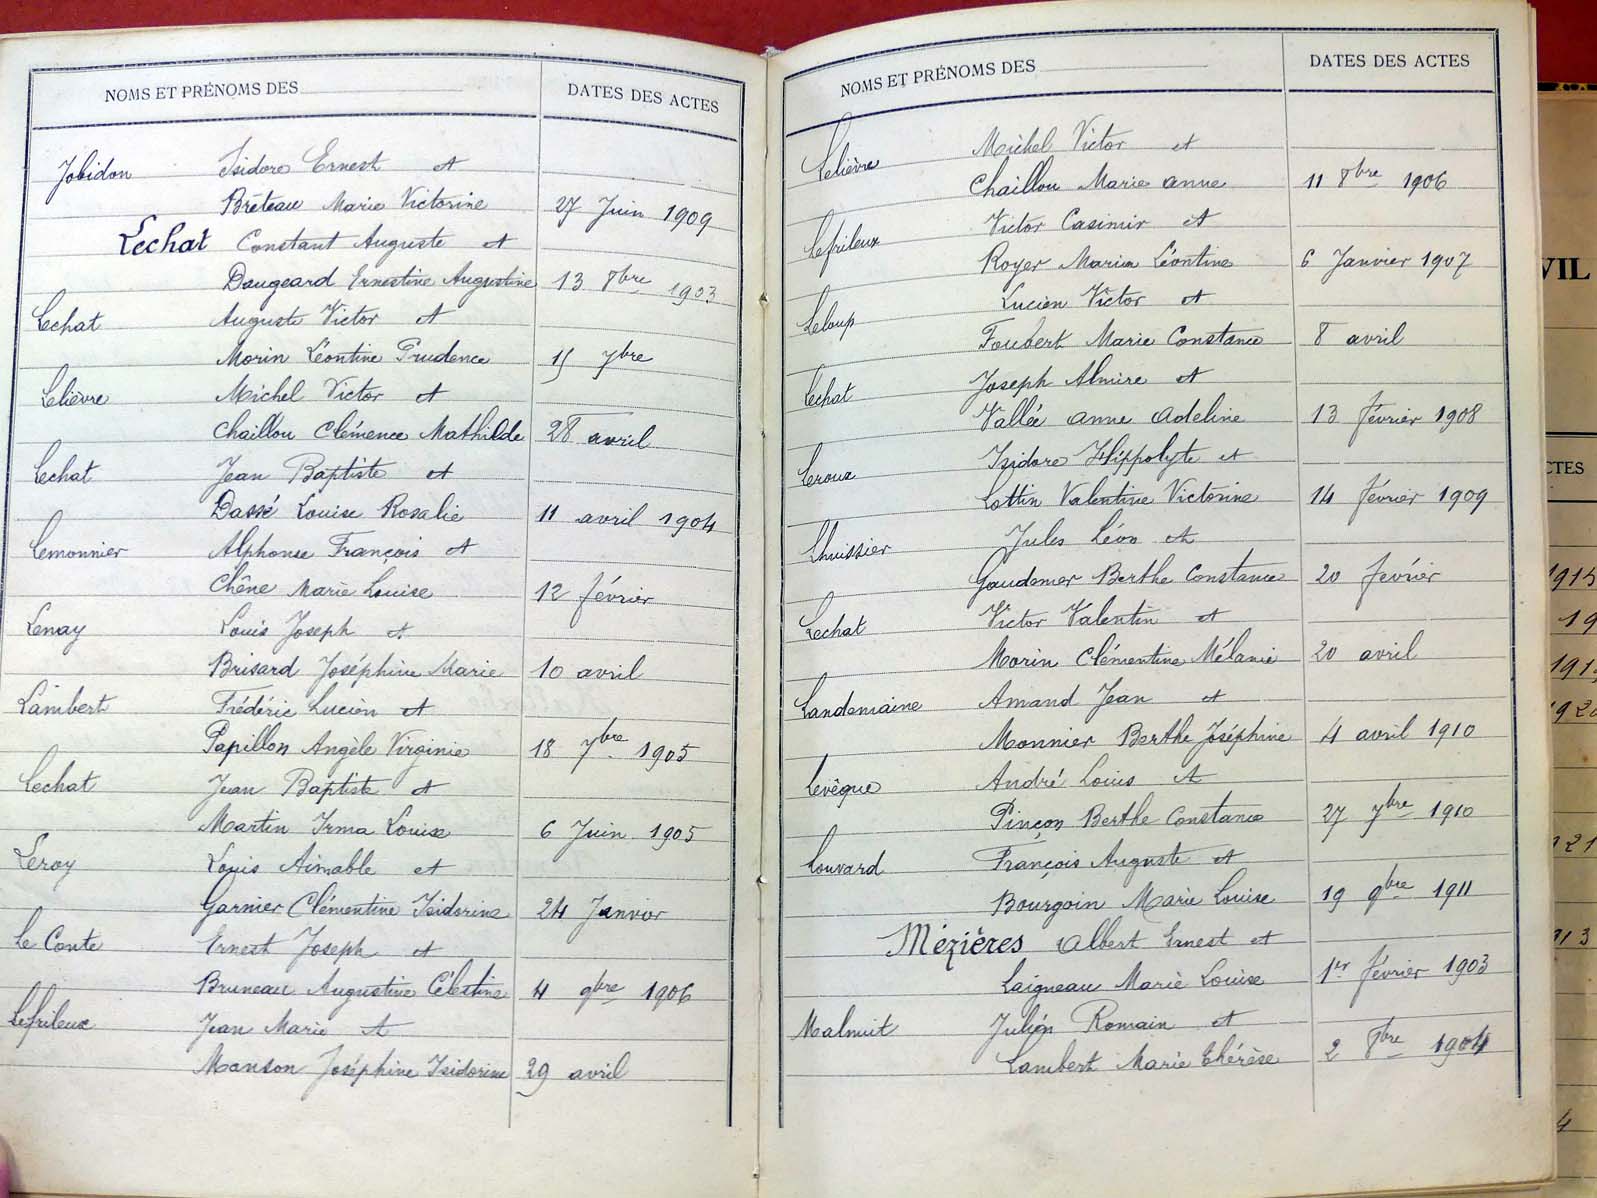 NOMS ET PRÉNOMS DES DATES DES ACTES
Jobidon Isidore Ernest et
Bréteau Marie Victorine 27 Juin 1909
Lechat Constant Auguste et
Daugeard Ernestine Augustine 13 8bre 1903
Lechat Auguste Victor et
Morin Léontine Prudence 15 7bre
Lelièvre Michel Victor et
Chaillou Clémence Mathilde 28 avril
Lechat Jean Baptiste et
Dassé Louise Rosalie 11 avril 1904
Lemonnier Alphonse François et
Chêne Marie Louise 12 février
Lenay Louis Joseph et
Brisard Joséphine Marie 10 avril
Lambert Frédéric Lucien et
Papillon Angèle Virginie 18 7bre 1905
Lechat Jean Baptiste et
Martin Irma Louise 6 Juin 1905
Leroy Louis Aimable et
Garnier Clémentine Isidorine 24 Janvier
Le Conte Ernest Joseph et
Bruneau Augustine Célestine 4 9bre 1906
Lefrileux Jean Marie et
Manson Joséphine Isidorine 29 avril
NOMS ET PRÉNOMS DES DATES DES ACTES
Lelièvre Michel Victor et
Chaillou Marie anne 11 8bre 1906
Lefrileux Victor Casimir et
Royer Maria Léontine 6 Janvier 1907
Leloup Lucien Victor et
Foubert Marie Constance 8 avril
Lechat Joseph Almire et
Vallée anne Adeline 13 février 1908
Leroux Isidore Hippolyte et
Lottin Valentine Victorine 14 février 1909
Lhuissier Jules Léon et
Gaudemer Berthe Constance 20 février
Lechat Victor Valentin et
Morin Clémentine Mélanie 20 avril
Landemaine Amand Jean et
Monnier Berthe Joséphine 4 avril 1910
Levêque André Louis et
Pinçon Berthe Constance 27 7bre 1910
Louvard François Auguste et
Bourgoin Marie Louise 19 9bre 1911
Mézières Albert Ernest et
Laigneau Marie Louise 1er février 1903
Malmuit Julien Romain et
Lambert Marie Thérèse 2 8bre 1904
VIL
CTES
1915
19
191
192
21
913
4